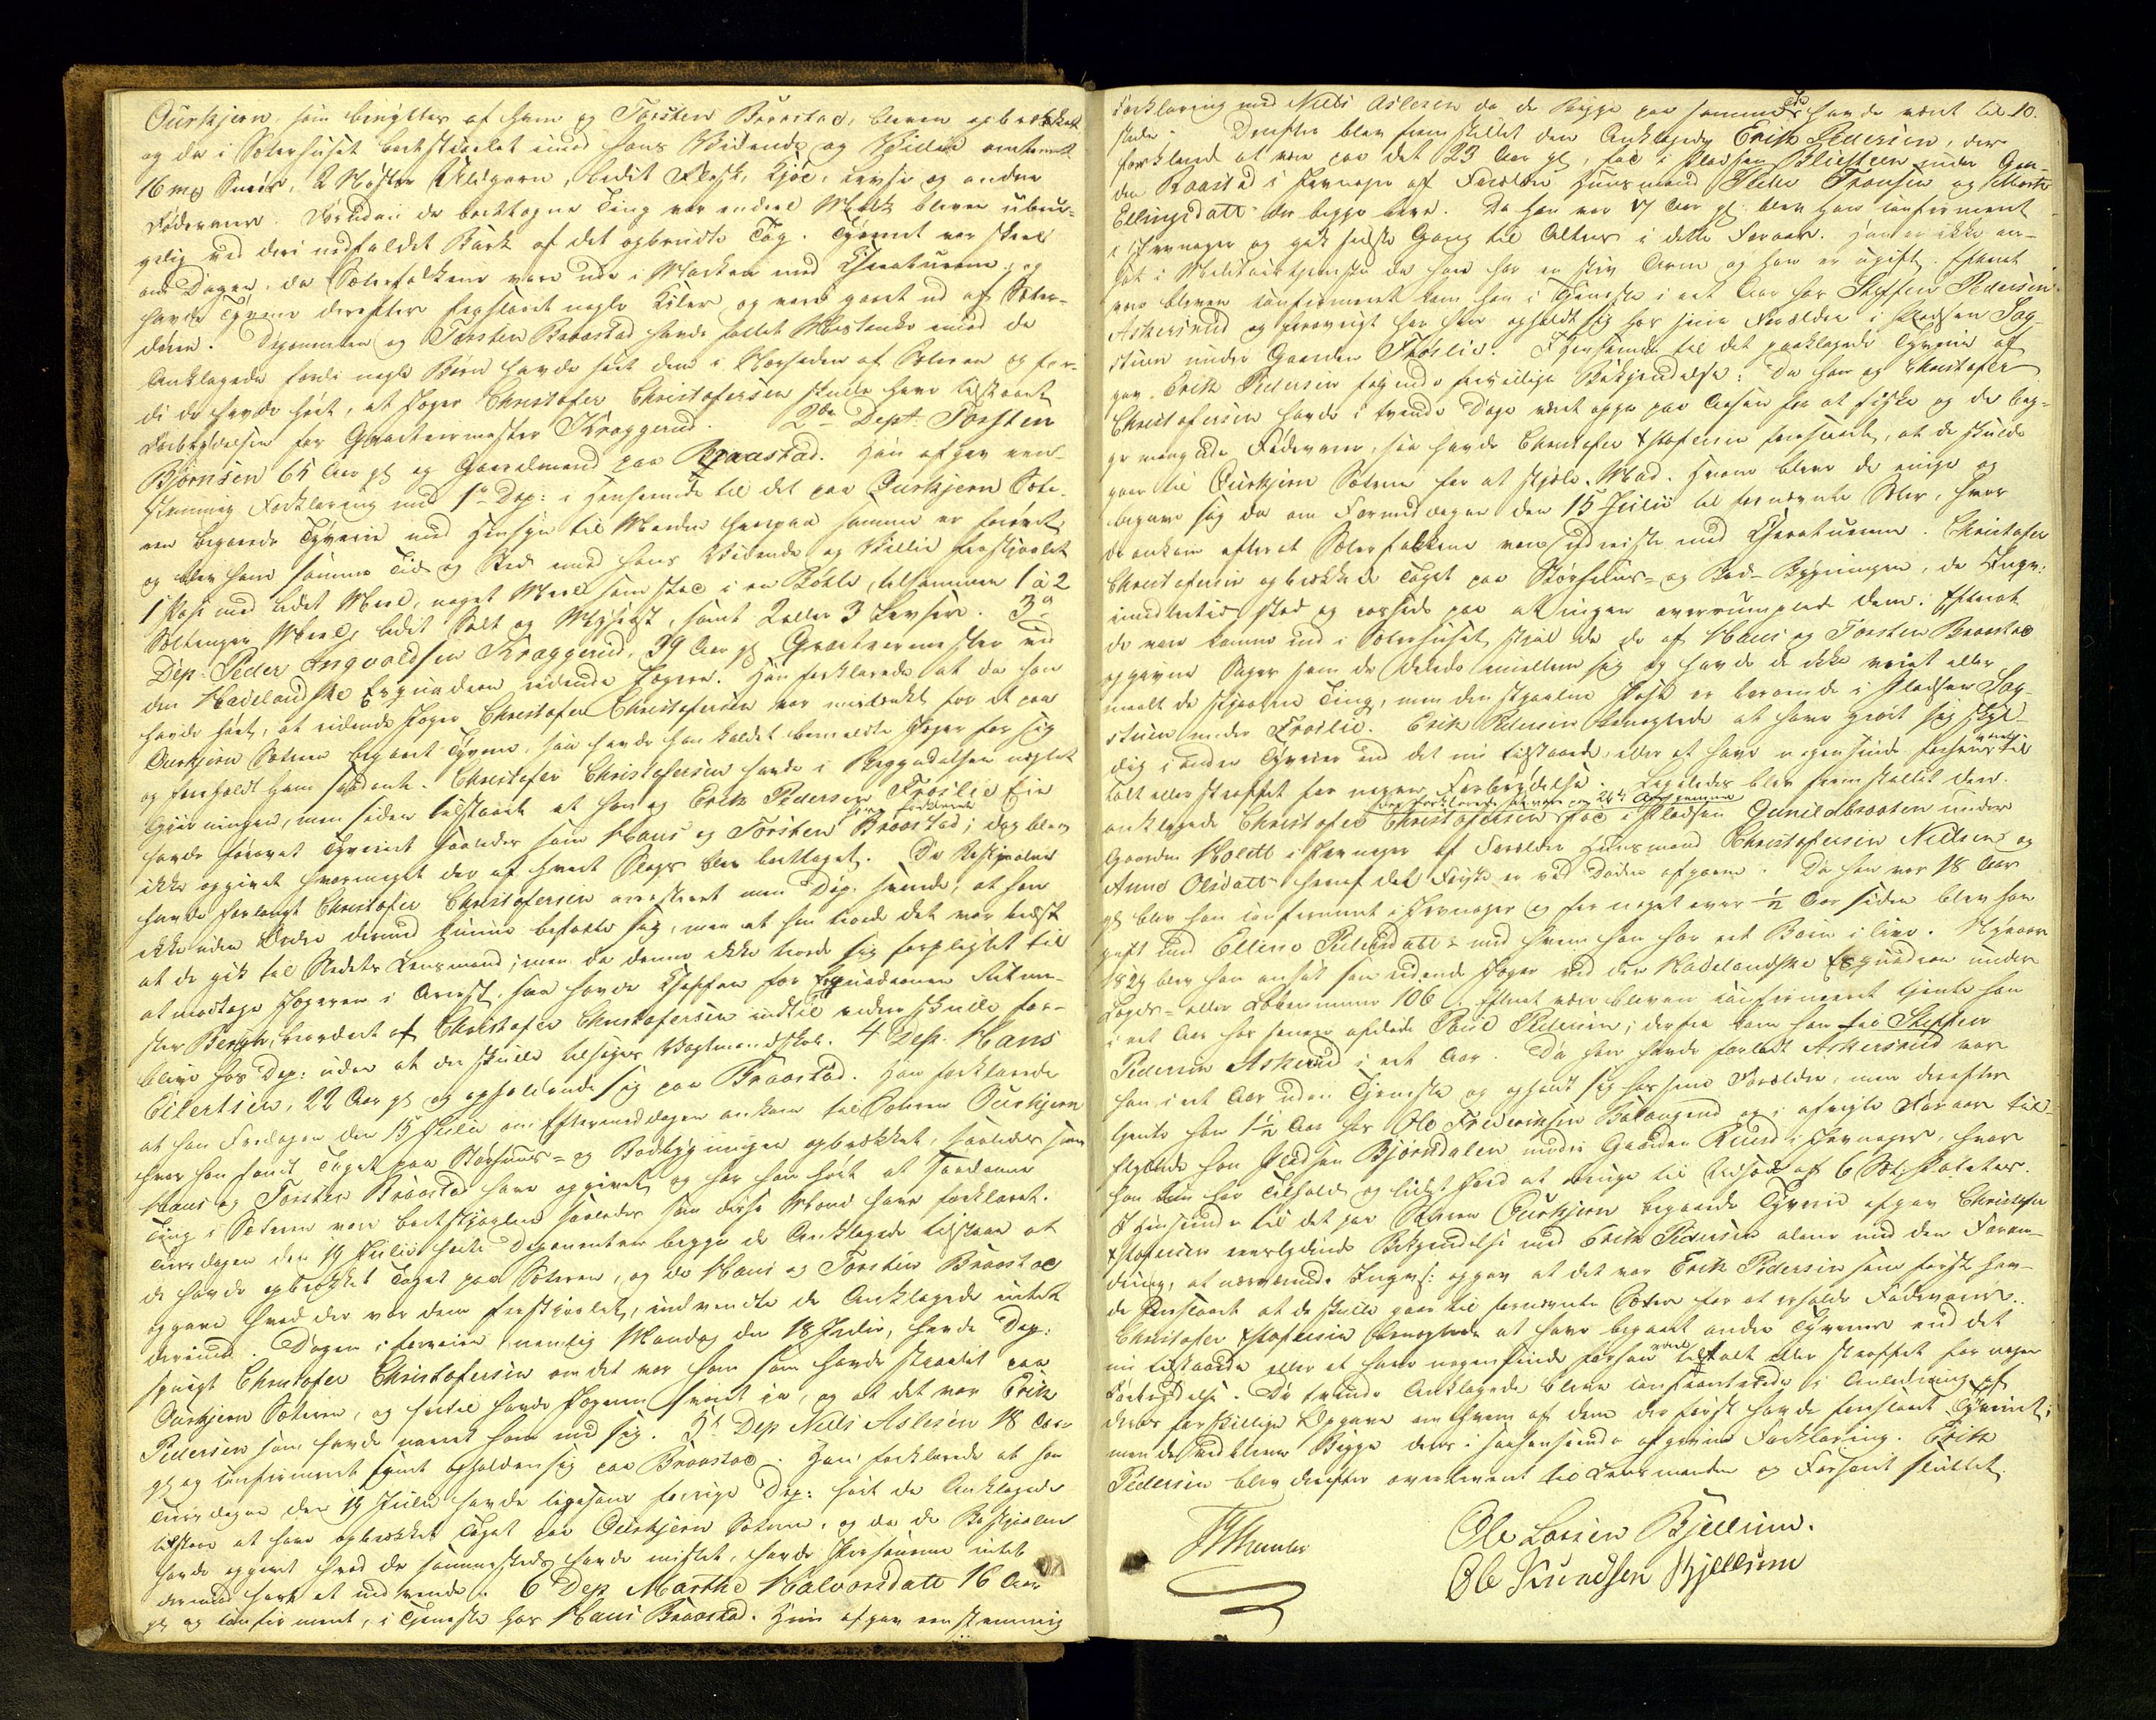 Ourkjern, som benyttes af ham og Torsten Braastad, bleven opbrækket
og da i Sæterhuset bortstjaalet imod hans Vidende og Villie omtrent
16 mk Smør, 2 Høster Uldgarn, lidet Flesk, Kjød, Levse og andre
Fødevarer. Foruden de borttagne Ting var endeel Melk bleven ubru-
gelig ved deri nedfaldet Bark af det opbrudte Tag. Tyveriet var skeet
om Dagen, da Sæterfolkene vare ude i Marken med Creaturene, og
havde Tyvene derefter
døren. Deponenten og Torsten Braastad havde fattet Mistanke imod de
Anklagede fordi nogle Børn havde seet dem i Nærheden af Sæteren og for-
di de havde hørt, at Jæger Christofer Christofersen skulde have tilstaaet
Forbrydelsen for Qvarteermester Kraggerud. 2den Dept. Torsten
Bjørnsen 65 Aar gl og Gaardmand paa Braastad. Han afgav een-
stemmig Forklaring med 1ste Dep: i Henseende til det paa Ourkjern Sæte-
ren begaaede Tyverie med Hensyn til Maaden hvorpaa samme er forøvet
og blev ham samme Tid og Sted mod hans Vidende og Villie frastjaalet
1 Pose med lidet Meel, noget Meel som stod i en Bøtte, tilsammen 1 à 2
Settinger Meel, lidt Salt og Mysost, samt 2 eller 3 Levser. 3die
Dep: Peder Ingvoldsen Kraggerud, 39 Aar gl Qvarteermester ved
den Hadelandske Esquadron ridende Jægere. Han forklarede at da han
havde hørt, at ridende Jæger Christofer Christofersen var mistænkt for et paa
Ourkjern Sæteren begaaet Tyverie, saa havde han kaldet bemeldte Jæger for sig
og foreholdt ham saadant. Christofer Christofersen havde i Begyndelsen negtet
Gjerningen, men siden tilstaaet at han og Erik Pedersen Froslie Eie
havde forøvet Tyveriet saaledes som Hans og Torsten Braastad have forklaret; dog blev
ikke opgivet hvormeget der af hvert Slags blev borttaget. De Bestjaalne
havde forlangt Christofer Christofersen arresteret men Dep. svarede, at han
ikke uden Ordre dermed kunne befatte sig, men at han troede det var bedst
at de gik til Stedets Lensmand; men da denne ikke troede sig forpligtet til
at modtage Jægeren i Arrest, saa havde Cheffen for Esquadronen Ritme-
ster Bergh, beordret at Christofer Christofersen indtil videre skulde for-
blive hos Dep: uden at der skulde tilsiges Vagtmandskab. 4 Dep. Hans
Eilertsen, 22 Aar gl og opholdende sig paa Braastad. Han forklarede
at han Fredagen den 15 Julii om Eftermiddagen ankom til Sæteren Ourkjern
hvor han fandt Taget paa Størhuus- og Bodbygningen opbrækket, saaledes som
Hans og Torsten Braastad have opgivet og har han hørt at saadanne
Ting i Sæteren vare bortstjaalne saaledes som disse Mænd have forklaret.
Tirsdagen den 19 Julii hørte Deponenten begge de Anklagede tilstaae at
de havde opbrækket Taget paa Sæteren, og da Hans og Torsten Braastad
opgave hvad der var dem frastjaalet, indvendte de Anklagede intet
derimod. Dagen i forveien nemlig Mandag den 18 Julii, havde Dep:
spurgt Christofer Christofersen om det var ham som havde stjaalet paa
Ourkjern Sæteren, og hertil havde Jægeren svaret ja, og at det var Erik
Pedersen som havde narret ham med sig. 5te Dep Niels Aslesen 18 Aar
gl og confirmeret samt opholdende sig paa Braastad. Han forklarede at han
Tirsdagen den 19 Julii havde ligesom forrige Dep: hørt de Anklagede
tilstaae at have opbrækket Taget paa Ourkjern Sæteren, og da de Bestjaalne
havde opgivet hvad de sammesteds havde mistet, havde Personerne intet
derimod havt at indvende. 6 Dep Marthe Halvorsdatt 16 Aar
gl og confirmeret, i Tjeneste hos Hans Braastad. Hun afgav eenstemmig
Forklaring med Niels Aslesen da de Begge paa samme Tid havde været til 10.
stede. Derefter blev fremstillet den Anklagede Erik Pedersen, der
forklarede at være paa det 23 Aar gl, fød i Pladsen Bliesteen under Gaar-
den Raastad i Jevnager af Forældre Huusmand Peder Tronsen og Marthe
Ellingsdatt der begge leve. Da han var 17 Aar gl blev han confirmeret
i Jevnager og gik sidste Gang til Alters i dette Foraar. Han er ikke an-
sat i Militairtjeneste da han har en stiv Arm og han er ugift. Efterat
være bleven confirmeret kom han i Tjeneste i eet Aar hos Steffen Pedersen
Askersrud og forøvrigt har han opholdt sig hos sine Forældre i Pladsen Sag-
stuen under Gaarden Froslie. I Henseende til det paaklagede Tyverie af-
gav Erik Pedersen følgende frivillige Bekjendelse: Da han og Christofer
Christofersen havde i tvende Dage været oppe paa Aasen for at fiske og de beg-
ge manglede Fødevarer, saa havde Christofer Xstofersen foreslaaet, at de skulde
gaae til Ourkjern Sæteren for at stjæle Mad. Herom bleve de enige og
begave sig da om Formiddagen den 15 Julii til fornævnte Sæter, hvor
de ankom efterat Sæterfolkene vare udreiste med Creaturerne. Christofer
Christofersen opbrækkede Taget paa Størhuus- og Bod-Bygningen, da Angiv:
imidlertid stod og passede paa at ingen overrumplede dem. Efterat
de vare komne ind i Sæterhuset stjal de de af Hans og Torsten Braastad
opgivne Sager som de deelede imellem sig og havde de ikke veiet eller
maalt de stjaalne Ting, men den stjaalne Pose er beroende i Pladsen Sag-
stuen under Froslie. Erik Pedersen benegtede at have gjort sig skyl-
dig i andre Tyverier end det nu tilstaaede, eller at have nogensinde forhen været til-
talt eller straffet for nogen Forbrydelse. Ligeledes blev fremstillet den
anklagede Christofer Christofersen der forklarede at være 24 Aar gammel fød i Pladsen Gunildbraaten under
Gaarden Holdt i Jevnager af Forældre Huusmand Christofersen Nielsen og
Anne Olsdatt hvoraf det Første er ved Døden afgaaen. Da han var 18 Aar
gl blev han confirmeret i Jevnager og for noget over ½ Aar siden blev han
gift med Ellene Pedersdatt med hvem han har eet Barn i live. Nytaar
1824 blev han ansat som ridende Jæger ved den Hadelandske Esquadron under
Lægds- eller Løbenummer 106. Efterat være bleven confirmeret tjente han
i eet Aar hos senere afdøde Poul Pedersen; derfra kom han til Steffen
Pedersen Askerud i eet Aar. Da han havde forladt Askersrud var
han i eet Aar uden Tjeneste og opholdt sig hos sine Forældre, men derefter
tjente han 1½ Aar hos Ole Fredriksen Bolangrud og i afvigte Foraar til-
flyttede han Pladsen Bjørndalen under Gaarden Ruud i Jevnager, hvor
han kun har Tilhold og lidet Jord at bruge til Udsæd af 6 Sk. Poteter.
I Henseende til det paa Sæteren Ourkjern begaaede Tyverie afgav Christofer
Xstofersen eenslydende Bekjendelse med Erik Pedersen alene med den Foran-
dring, at nærværende Angiv: opgav at det var Erik Pedersen som først hav-
de foreslaaet at de skulde gaae til fornævnte Sæter for at erholde Fødevarer.
Christofer Xstofersen benegtede at have begaaet andre Tyverier end det
nu tilstaaede eller at have nogensinde forhen været tiltalt eller straffet for nogen
Forbrydelse. De tvende Anklagede bleve confronterede i Anledning af
deres forskjellige Opgave om hvem af dem der først havde foreslaaet Tyveriet;
men de vedbleve Begge deres i saa Henseende afgivne Forklaring. Erik
Pedersen blev derefter overleveret til Lensmanden og Forhøret sluttet.
Ole Larsen Bjellum.
Ole Knudsen Bjellum